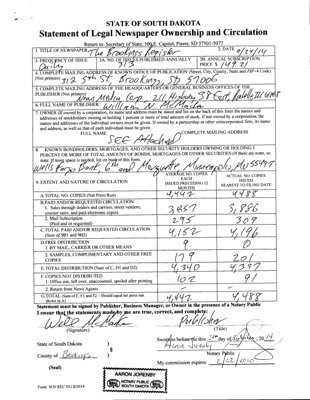 STATE OF SOUTH DAKOTA
Statement of Legal Newspaper Ownership and Circulation
Return to: Secretary of State, 500 E. Capitol, Pierre, SD 57501-5077
1. TITLE OF NEWSPAPER The Brookings Register 2. DATE 9/24/14
3. FREQUENCY OF ISSUE Daily 3A. NO. OF ISSUES PUBLISHED ANNUALLY 3B. ANNUAL SUBSCRIPTION PRICE $
4. COMPLETE MAILING ADDRESS OF KNOWN OFFICE OF PUBLICATION (Street, City, County, State and ZIP+4 Code)
(Not printers) 312 5th St, Brookings, SD 57006
5. COMPLETE MAILING ADDRESS OF THE HEADQUARTERS OR GENERAL BUSINESS OFFICES OF THE
PUBLISHER (Not printer) News Media Corp, 211 Highway 38 East, Rochelle IL
6. FULL NAME OF PUBLISHER: William N. McMacken
7. OWNER (If owned by a corporation, its name and address must be stated and list on the back of this form the names and
addresses of stockholders owning or holding 1 percent or more of total amount of stock. If not owned by a corporation, the
names and addresses of the individual owners must be given. If owned by a partnership or other unincorporated firm, its name
and address, as well as that of each individual must be given.
FULL NAME COMPLETE MAILING ADDRESS
SEE Attached
8. KNOWN BONDHOLDERS, MORTGAGES, AND OTHER SECURITY HOLDERS OWNING OR HOLDING 1
PERCENT OR MORE OF TOTAL AMOUNT OF BONDS, MORTGAGES OR OTHER SECURITIES (If there are none, so
state. If more space is needed, list on back of this form.
Wells Fargo Bank, 6th and Marquette, Minneapolis, MN 55479
9. EXTENT AND NATURE OF CIRCULATION
AVERAGE NO. COPIES EACH ISSUED PRECEDING 12 MONTHS
ACTUAL NO. COPIES ISSUED NEAREST TO FILING DATE
A. TOTAL NO. COPIES (Net Press Run) 4,442 4488
B. PAID AND/OR REQUESTED CIRCULATION
1. Sales through dealers and carriers, street vendors,
counter sales, and paid electronic copies. 3,857 3,886
2. Mail Subscription
(Paid and/or requested) 295 309
C. TOTAL PAID AND/OR REQUESTED CIRCULATION
(Sum of 9B1 and 9B2) 4,152 4,196
D. FREE DISTRIBUTION
1. BY MAIL, CARRIER OR OTHER MEANS 9 0
2. SAMPLES, COMPLIMENTARY AND OTHER FREE
COPIES 179 201
E. TOTAL DISTRIBUTION (Sum of C, D1 and D2) 4,340 4,397
F. COPIES NOT DISTRIBUTED
1. Office use, left over, unaccounted, spoiled after printing 102 91
2. Return from News Agents
G. TOTAL (Sum of E, F1 and F2 - Should equal net press run
shown in A) 4,442 4,488
Statement must be signed by Publisher, Business Manager, or Owner in the presence of a Notary Public
I swear that the statements made by me are true, correct, and complete:
Publisher
(Signature) (Title)
Sworn to before me this day of 20 14
State of South Dakota )
Aaron Jorenby
§ Notary Public
County of Brookings )
My commission expires: 2/22/2020
(Seal)
AARON JORENBY
NOTARY PUBLIC
SOUTH DAKOTA
SEAL
Form: SOS REC 051 8/2014